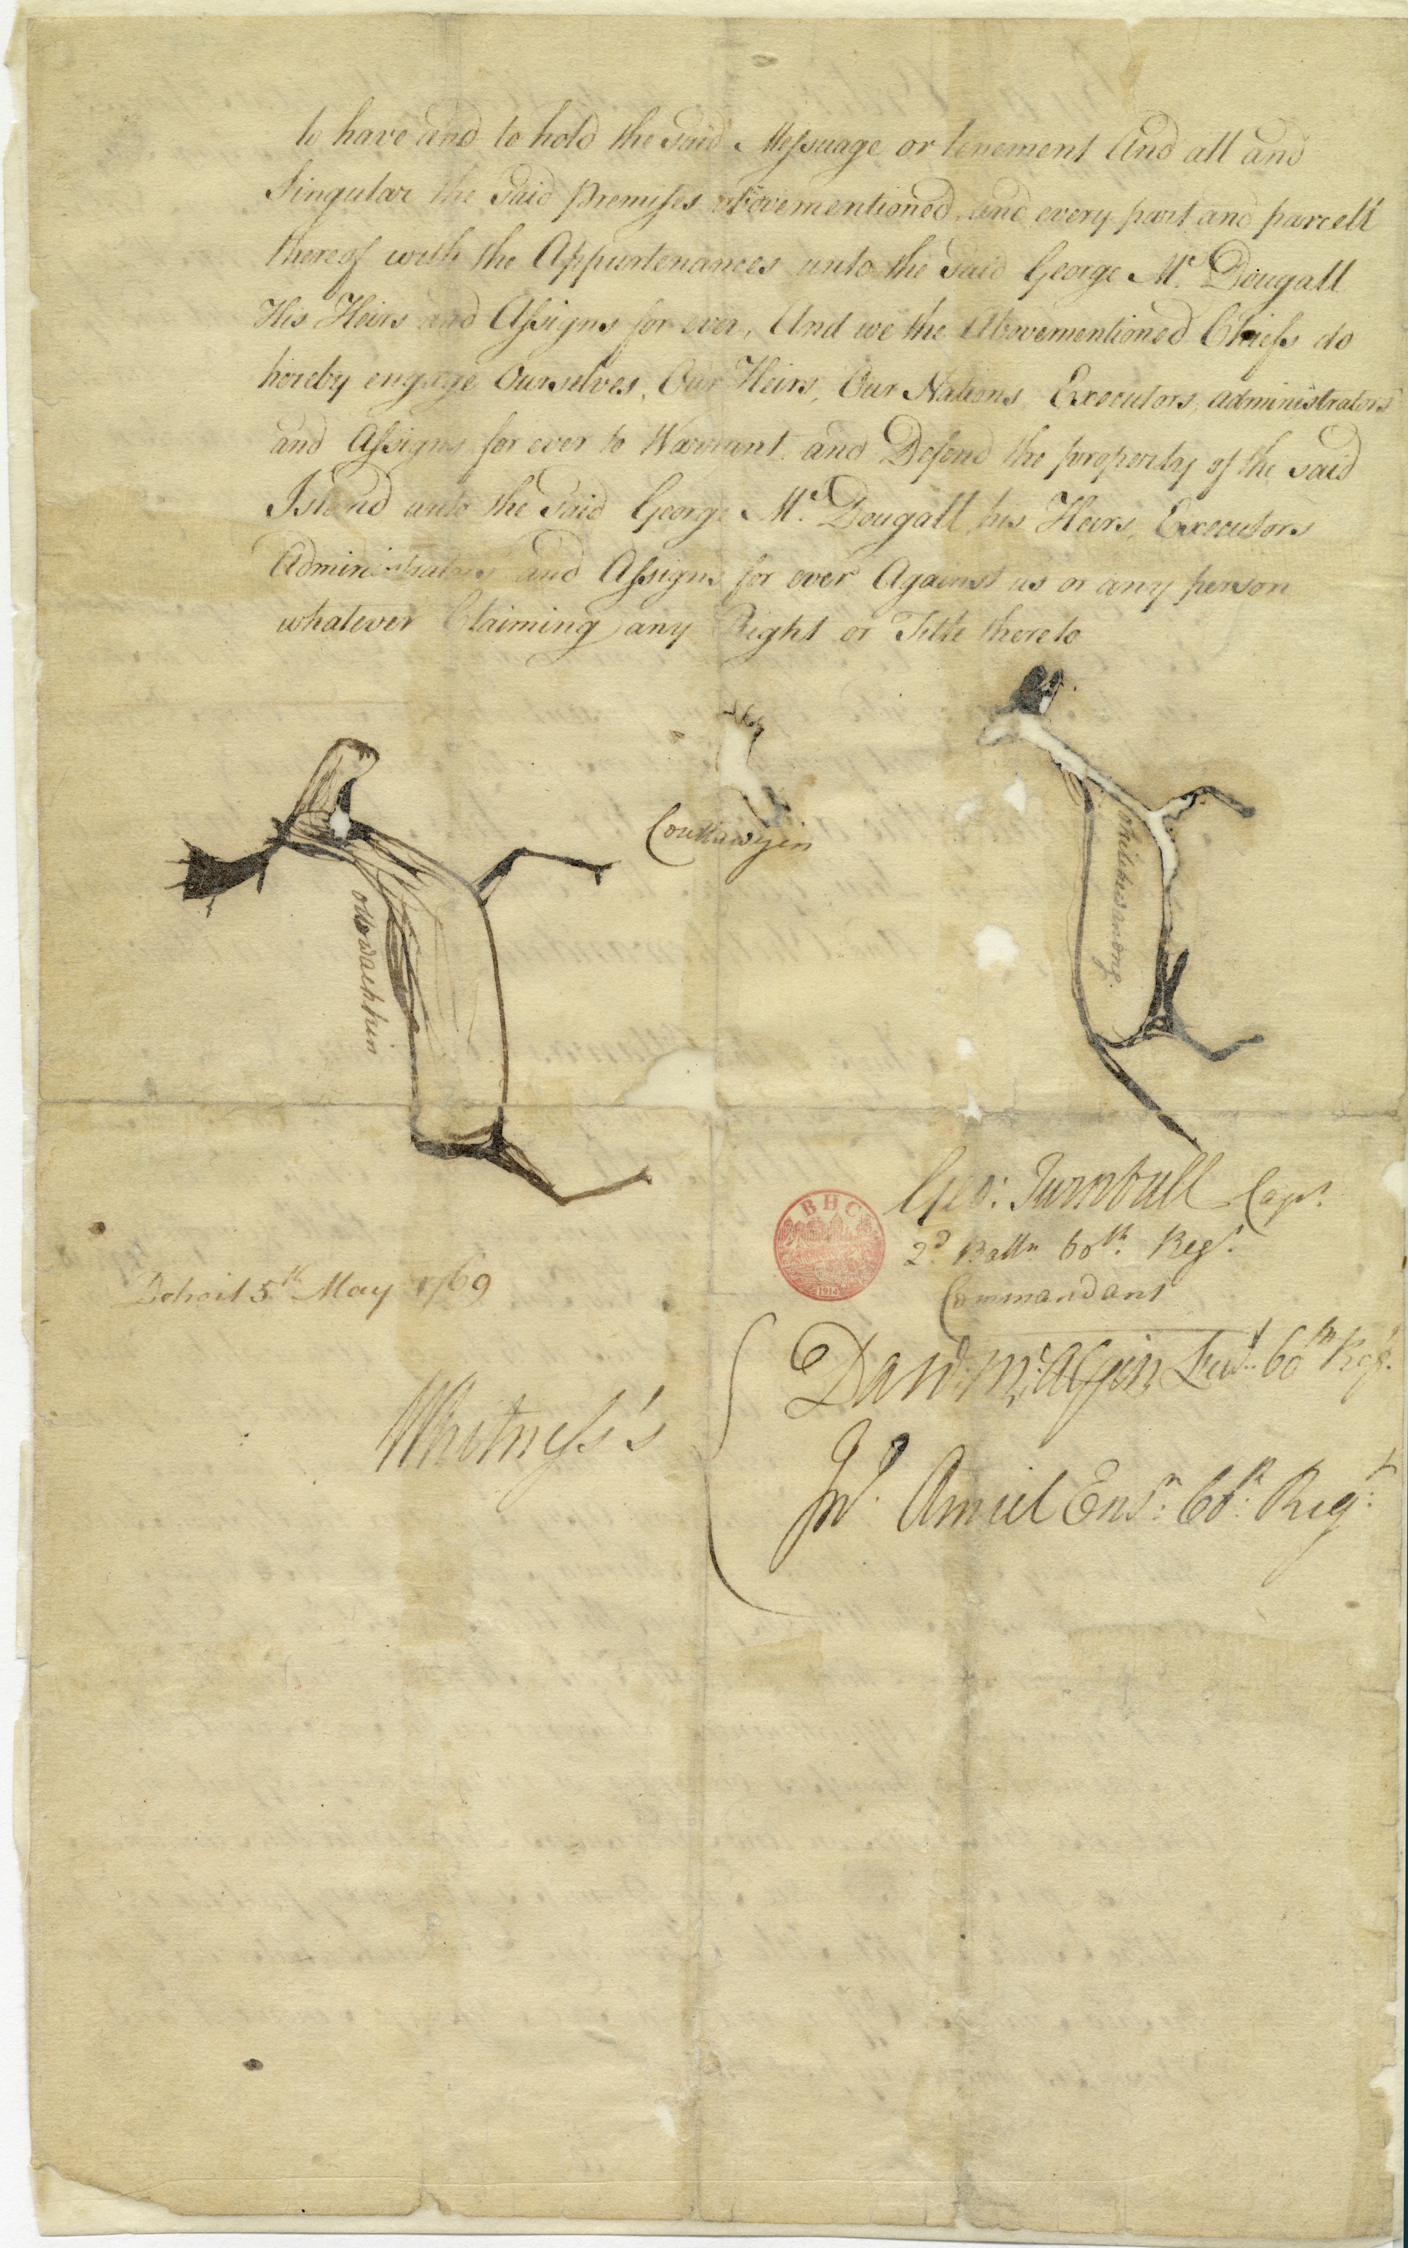 to have and to hold the said Messuage or tenement And all and
Singular the said premises abovementioned, and every part and parcell
thereof with the Appurtenances unto the said George Mc. Dougall
His Heirs and Assigns for ever, And we the Abovementioned Chiefs do
hereby engage Ourselves, Our Heirs, Our Nations Executors, administrators
and Assigns for ever to Warrant and Defend the property of the said
Island unto the said George Mc. Dougall his Heirs, Executors
Administrators and Assigns for ever Against us or any person
whatever Claiming any Right or Title thereto
Couttawyin
ottowachkin
Geo: Turnbull Capt.
2d Battn 60th. Regt.
Commandant
BHC
1914
Detroit 5th May 1769
Whitness's
Dand. McAlpin Lieut. 60th Regt.
Jno. Amiel Ensn. 60th. Regt.